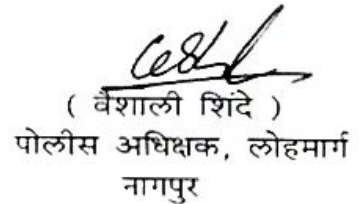 ( वैशाली शिंदे )
पोलीस अधिक्षक, लोहमार्ग
नागपुर